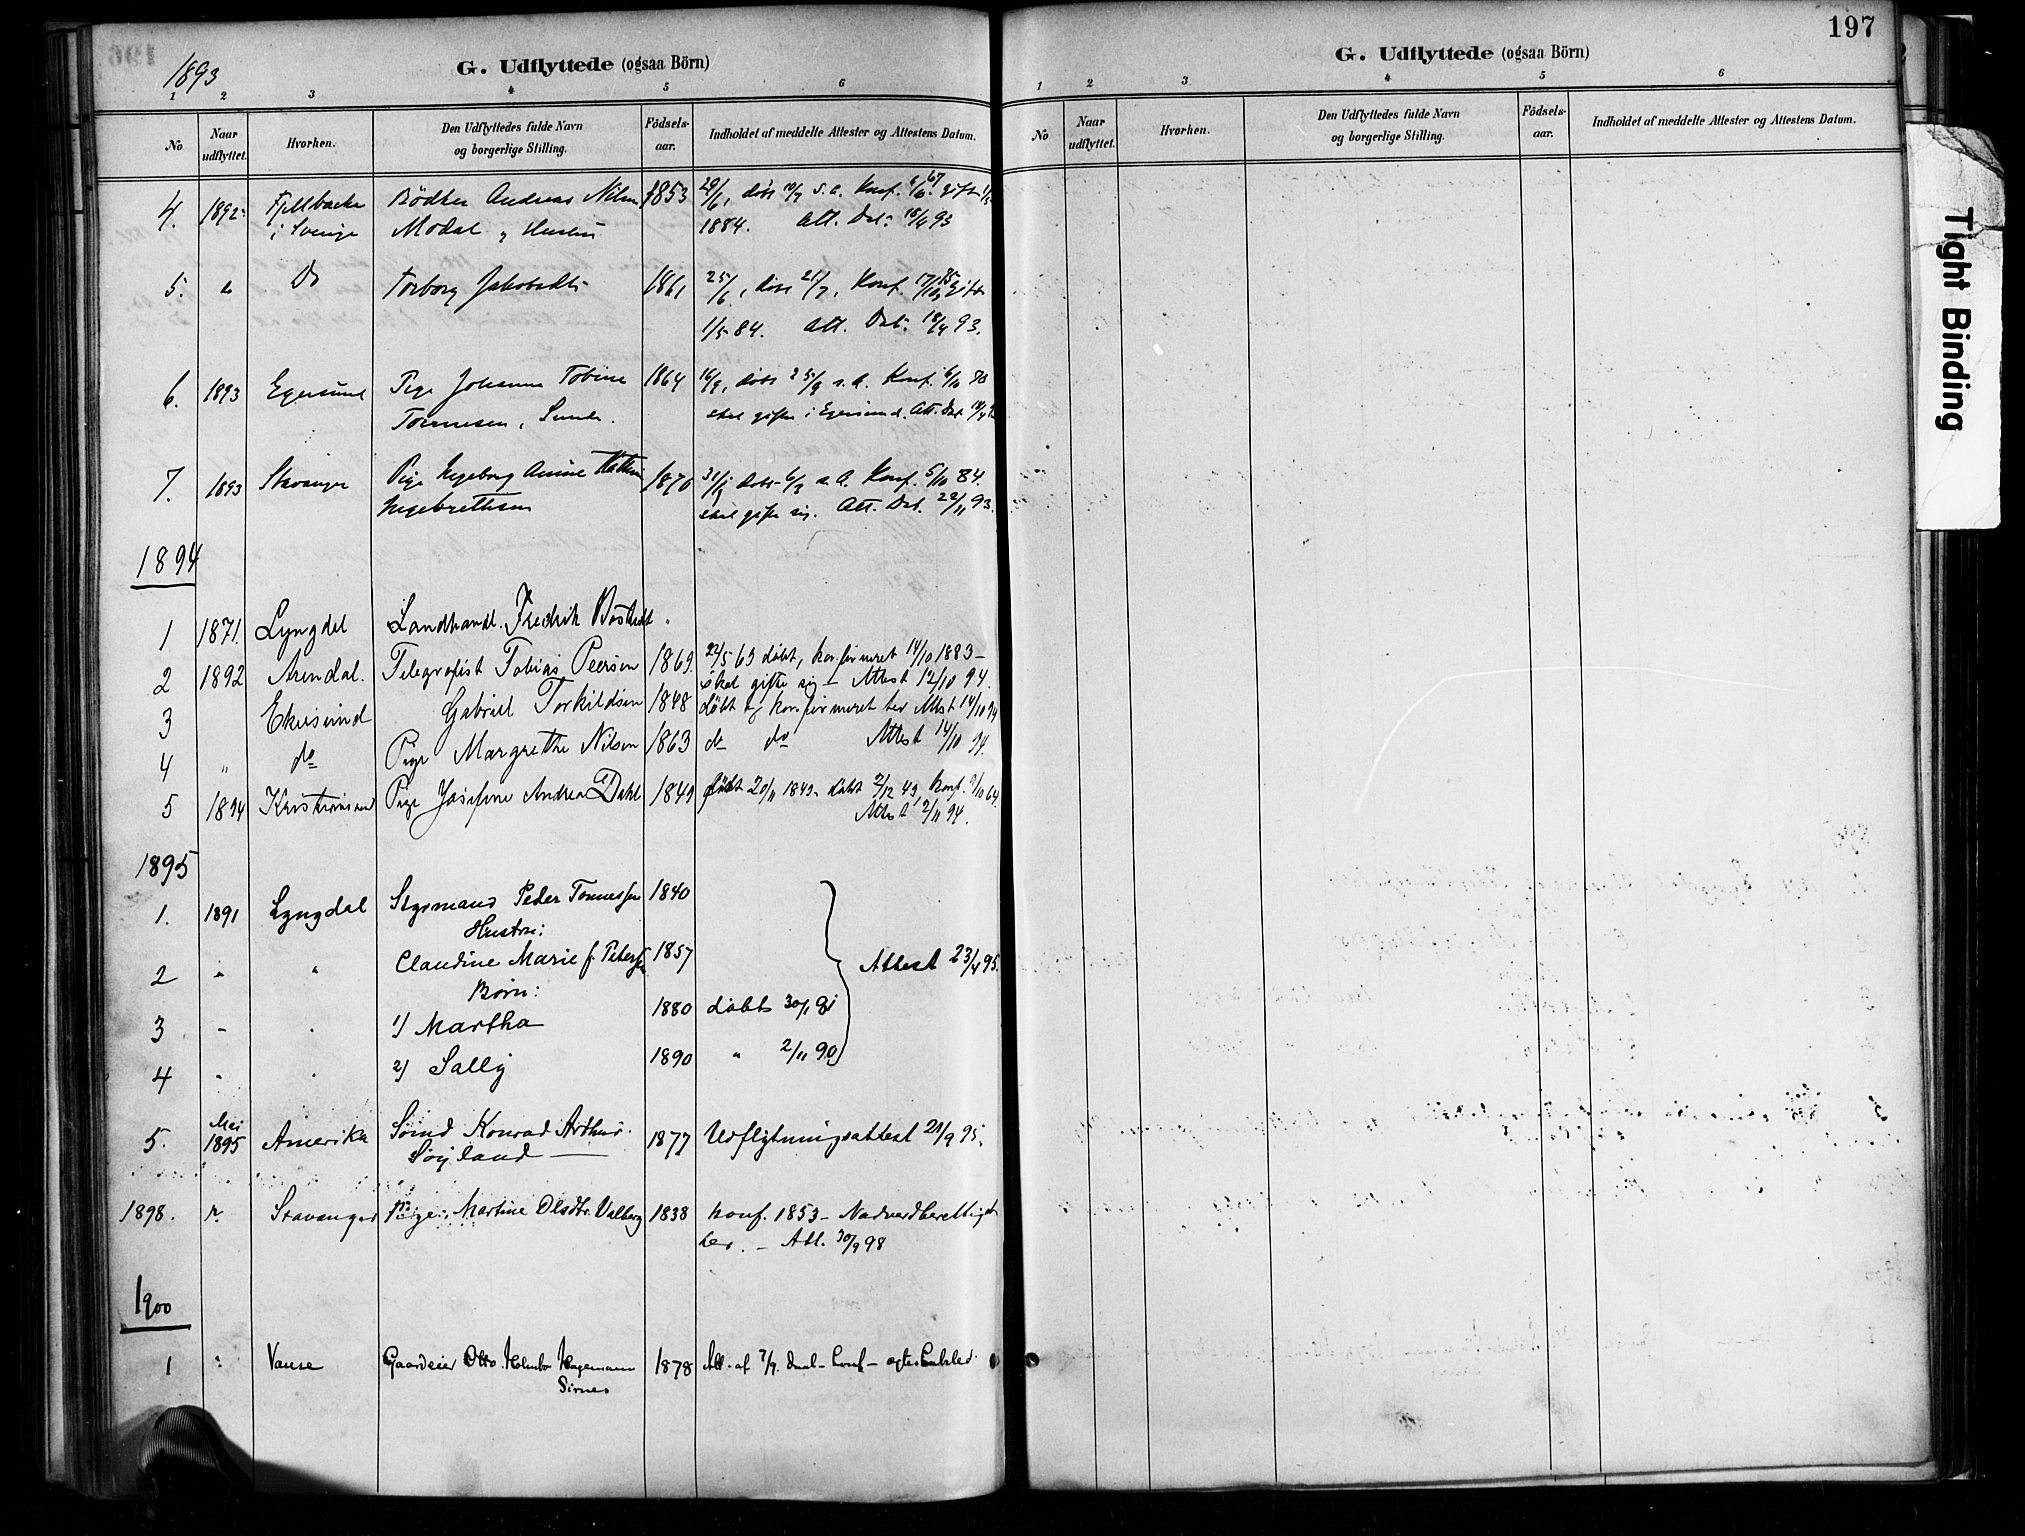 1893
G. Udflyttede (ogsaa Börn)
1 2 3 4 5 6
No Naar udflyttet. Hvorhen. Den Udflyttedes fulde Navn og borgerlige Stilling. Födsels-aar. Indholdet af meddelte Attester og Attestens Datum.
4. 1892 Fjellbacka Bödker Andreas 1853 döbt s. a. Konf.
i Sverige Modal 1884. Att. Dat. 18/4 93
5. Do Torborg 1861 25/6, döbt 21/7, Konf.
1/5 84. Att. Dat. 18/4 93.
6. 1893 Egersund Pige Johanne Tobine 1864 16/9, döbt 25/9 s. A. Konf. 6/10
Tönnesen, skal gifte i Egersund. Att. Dat.
7. 1893 Stavanger Pige Ingeborg 1870 döbt 6/3 s. A. Konf. 5/10 84.
Ingebrettsen skal gifte sig. Att. Dat. 22/11 93.
1894
1 1871. Lyngdal Landhandl. Fredrik
2 1892 Arendal. Telegrafist Tobias Peersen 1869. 22/5 63 døbt, konfirmeret 14/10 1883 –
skal gifte sig – Attest 12/10 94.
3 Ekersund Gabriel Torkildsen 1848 døbt og konfirmeret her Attest 14/10 94
4 " do Pige Margrethe Nilsen 1863 do do Attest 14/10 94.
5 1894 Kristiansand Pige Josefine Andrea Dahl 1849 født 20/11 1849 – døbt 2/12 49, konf. 9/10 64.
Attest 2/11 94.
1895
1. 1891 Lyngdal Stysmand Peder Tønnessen 1840
Hustru:
2 " " Claudine Marie f. Peters 1857 Attest 23/4 95.
Børn:
3 - 1) Martha 1880 døbt 30/1 81
4 " 2) Sally 1890 " 2/11 90
5. Mai 1895 Amerika Svend Konrad Arthur 1877 Udflytningsattest 21/9 95.
Søyland —
1898. Stavanger Pige Martine Olsdtr. Valberg 1838 konf. 1853 – Nadverdberettiget
her. – Att. 30/9 98
1900
1 " Vanse Gaardeier Otto Holmbo Hagemann 1878 Att. af 7/9.
Sirnes
197
G. Udflyttede (ogsaa Börn)
1 2 3 4 5 6
No Naar udflyttet. Hvorhen. Den Udflyttedes fulde Navn og borgerlige Stilling. Födsels-aar. Indholdet af meddelte Attester og Attestens Datum.
Tight Binding